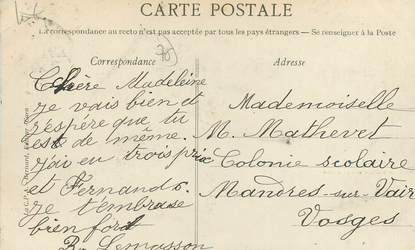 CARTE POSTALE
La correspondance au recto n'est pas acceptée par tous les pays étrangers — Se renseigner à la Poste
Correspondance
Chère Madeleine
Je vais bien et
j'espère que tu
es de même.
J'ai eu trois prix
et Fernand 6.
Je t'embrasse
bien fort
Lemasson
Adresse
Mademoiselle
M. Mathevet
Colonie scolaire
Mandres-sur-Vair
Vosges